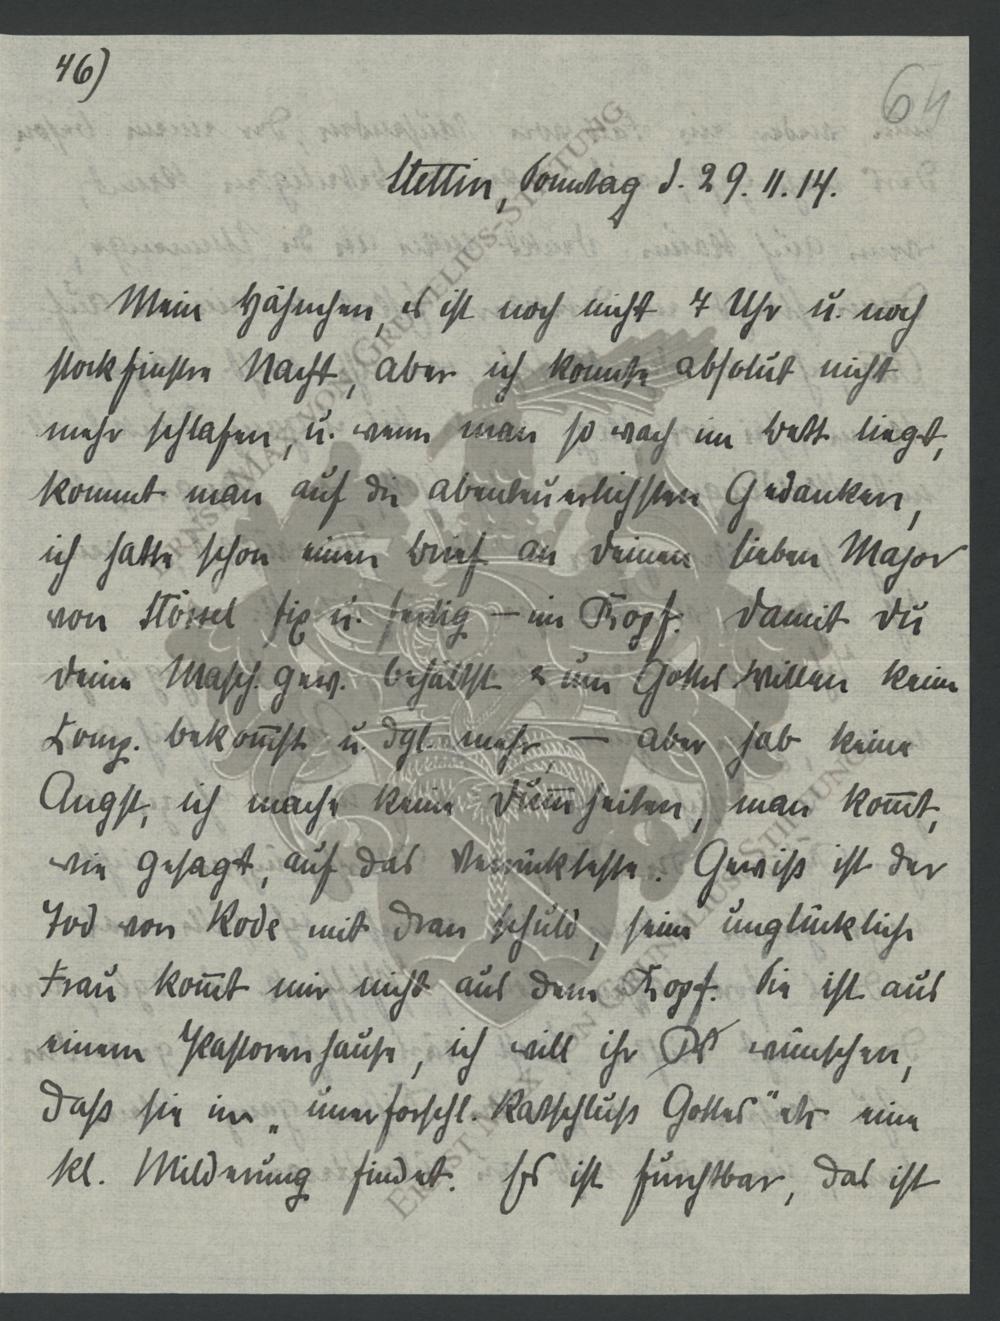 46)
64
Stettin, Sonntag d. 29. 11. 14.
Mein Hähnchen, es ist noch nicht 7 Uhr u. noch
stockfinstre Nacht, aber ich konnte absolut nicht
mehr schlafen, u. wenn man so wach im Bett liegt,
kommt man auf die abenteuerlichsten Gedanken,
ich hatte schon einen Brief an deinen lieben Major
von Stössel fix u. fertig – im Kopf. Damit du
deine Masch. gew. behältst & um Gottes willen keine
Comp. bekom̅st u. dgl. mehr, – aber hab keine
Angst, ich mache keine Dum̅heiten, man kom̅t,
wie gesagt, auf das Verrückteste. Gewiß ist der
Tod von Rode mit dran schuld, seine unglückliche
Frau kom̅t mir nicht aus dem Kopf. Sie ist aus
einem Pastorenhause, ich will ihr wünschen,
daß sie im „unerforschl. Ratschluß Gottes" etc eine
kl. Milderung findet. Es ist furchtbar, das ist
ERNST MAX VON GRUNELIUS-STIFTUNG
ERNST MAX VON GRUNELIUS-STIFTUNG